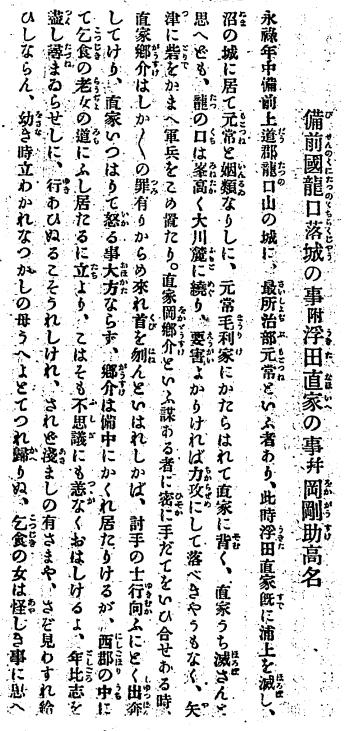 備前國龍口落城の事附浮田直家の事幷岡剛助高名
永祿年中備前上道郡龍口山の城に、最所治部元常といふ者あり、此時浮田直家旣に浦上を滅し、
沼の城に居て元常と姻類なりしに、元常毛利家にかたらはれて直家に背く、直家うち滅さんと
思へども、龍の口は峯高く大川麓に繞り、要害よかりければ力攻にして落べきやうもなく、矢
津に砦をかまへ軍兵をこめ置たり。直家岡鄕介といふ謀ある者に密に手だてをいひ合せある時、
直家鄕介はしか〴〵の罪有りからめ來れ首を刎んといはれしかば、討手の士行向ふにとく出奔
してけり、直家いつはりて怒る事大方ならず、鄕介は備中にかくれ居たりけるが、西郡の中に
て乞食の老女の道にふし居たるに立より、こはそも不思議にも恙なくおはしけるよ、年比志を
盡し尋まゐらせしに、行あひぬるこそうれしけれ、されど淺ましの有さまや、さぞ見わすれ給
ひしならん、幼き時立わかれなつかしの母うへよとてつれ歸りぬ、乞食の女は怪しき事に思へ